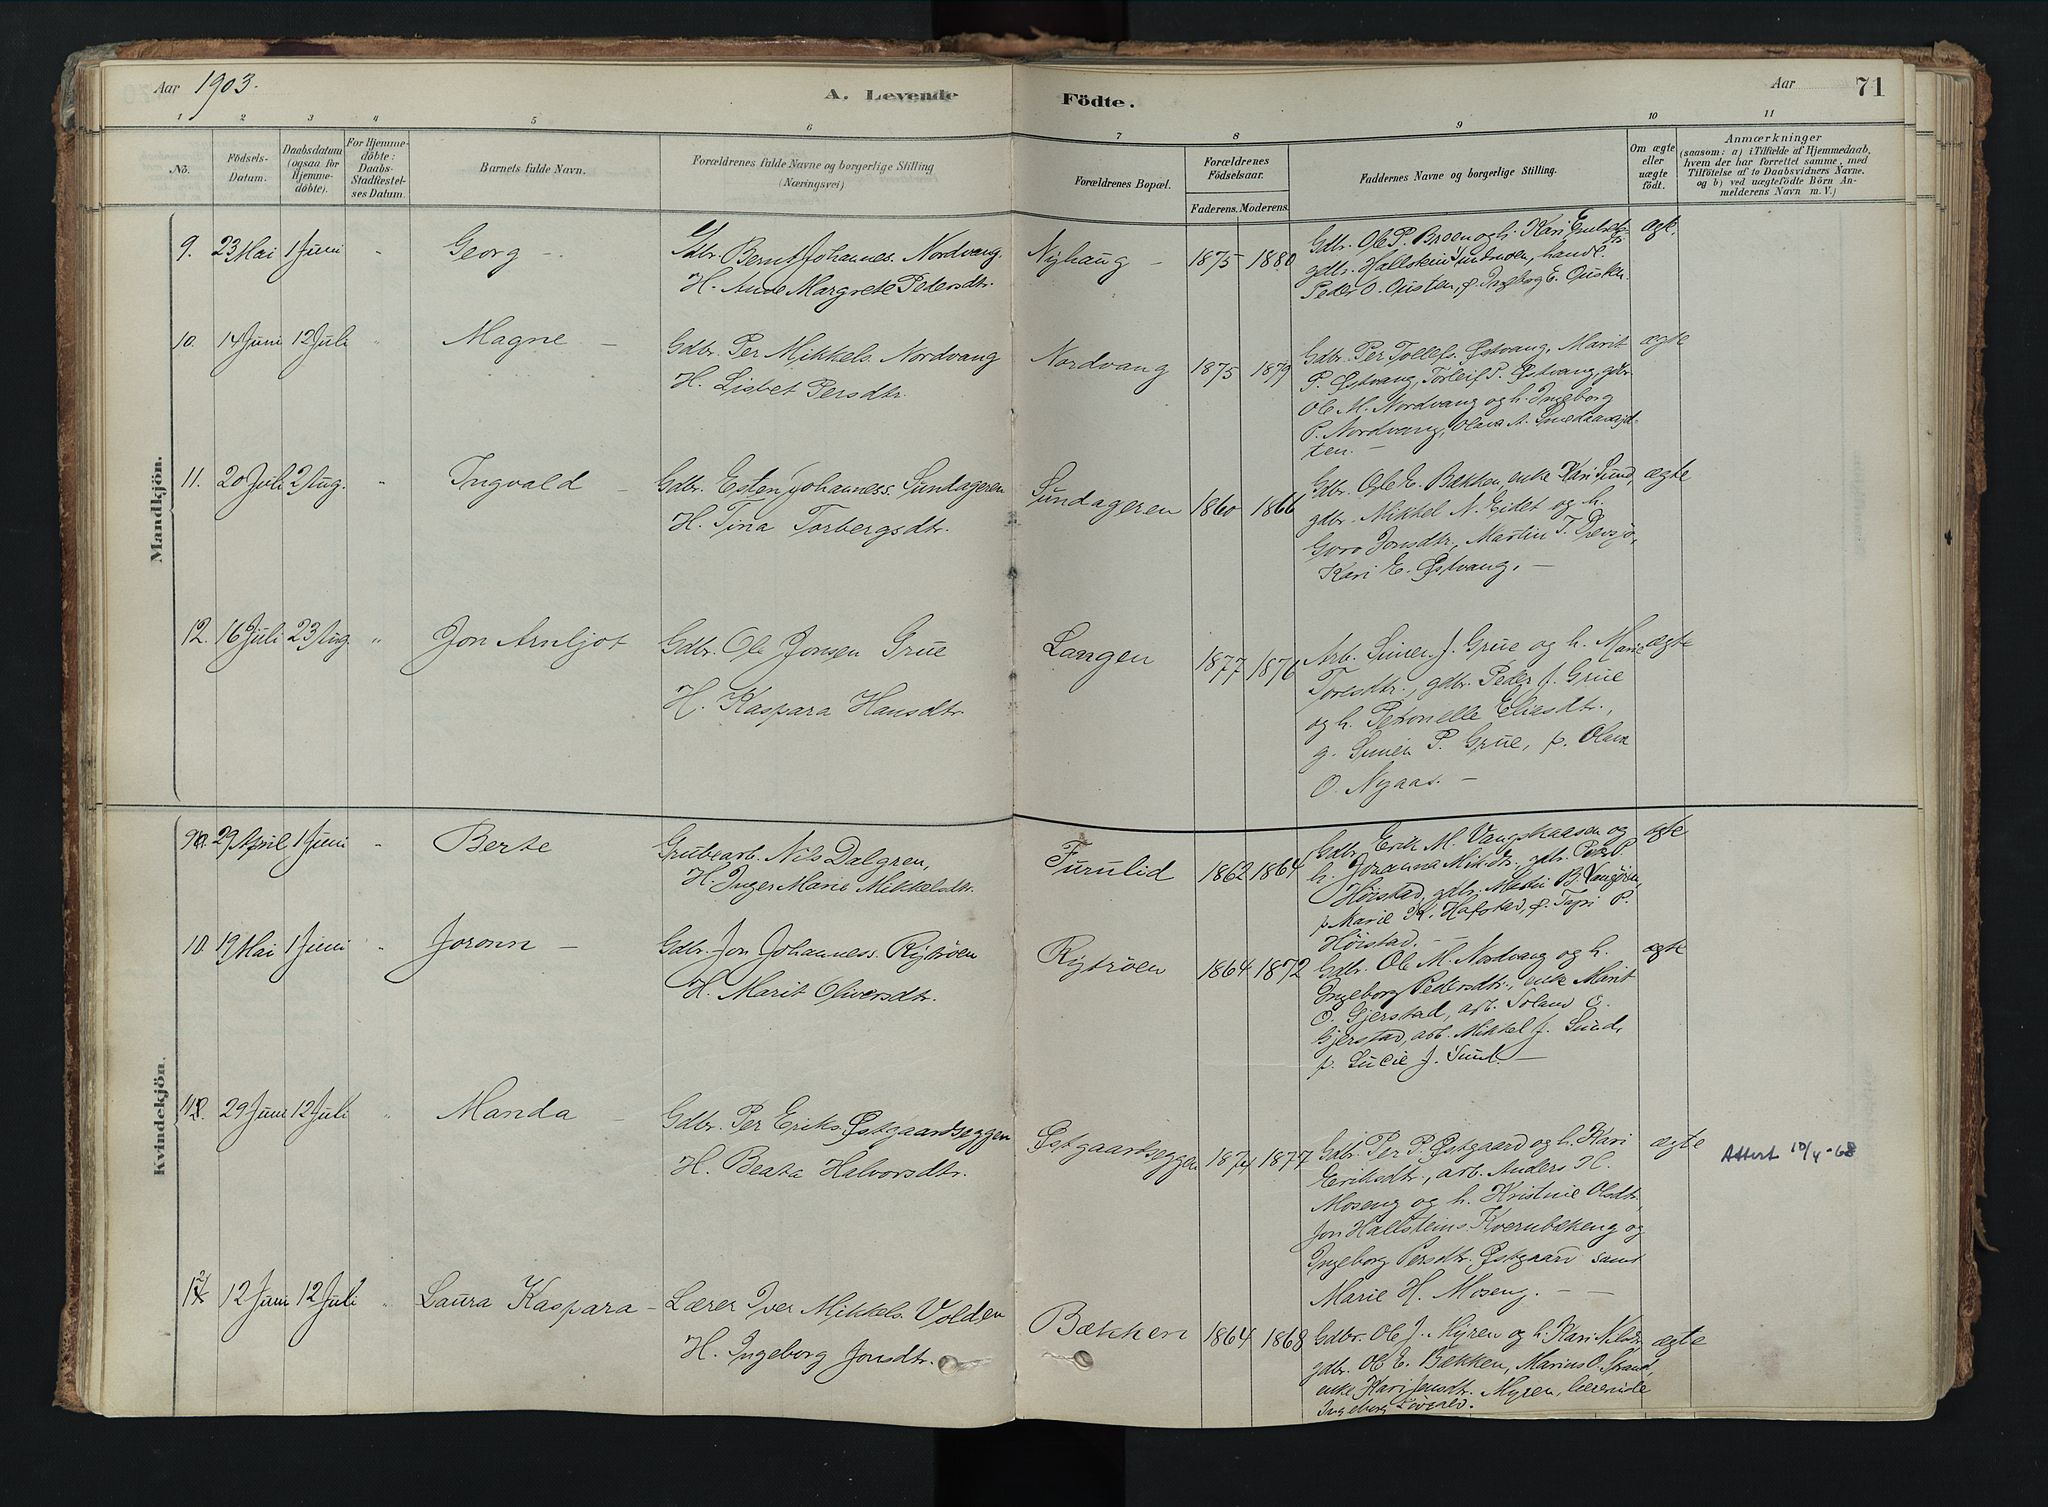 Aar 1903.
A. Levende Födte.
Aar 71
1 2 3 4 5 6 7 8 9 10 11
No.
Födsels-Datum.
Daabsdatum (ogsaa for Hjemme-döbte).
For Hjemme-döbte: Daabs-Stadfestel-ses Datum.
Barnets fulde Navn.
Forældrenes fulde Navne og borgerlige Stilling (Næringsvei)
Forældrenes Bopæl.
Forældrenes Födselsaar.
Faderens. Moderens.
Faddernes Navne og borgerlige Stilling.
Om ægte eller uægte födt.
Anmærkninger
(saasom: a) i Tilfælde af Hjemmedaab, hvem der har forrettet samme, med Tilföielse af to Daabsvidners Navne. og b) ved uægtefödte Börn An-melderens Navn m. V.)
Mandkjön.
9. 23 Mai 1 Juni " Georg -
Gdbr. Bernt Johannes. Nordvang.
H. Ane Margrete Pedersdtr.
Nyhaug - 1875 1880
Gdbr. Ole P. Broen og h. Kari
gdbr. Hallstein handl.
Peder O. Ousten, p. Ingeborg E. Ousten.
ægte.
10. 14 Juni 12 Juli " Magne -
Gdbr. Per Mikkels. Nordvang
H. Lisbet Persdtr.
Nordvang 1875 1879
Gdbr. Per Tollefs. Østvang, Marit
P. Østvang, Torleif P. Østvang, gdbr.
Ole M. Nordvang og h. Ingeborg
P. Nordvang, Olava A.
ten. -
ægte
11. 20 Juli 2 Aug. " Ingvald -
Gdbr. Esten Johanness. Sundageren
H. Tina Torbergsdtr.
Sundageren 1860 1866
Gdbr. Ole E. Bækken, enke Kari Sund,
gdbr. Mikkel N. Eidet og h.
Goro Jonsdtr., Martin T.
Kari E. Østvang. -
ægte
12. 16 Juli 23 Aug " Jon Arnljot
Gdbr. Ole Jonsen Grue
H. Kaspara Hansdtr.
Langen 1877 1876
Arb. Simen J. Grue og h. Marie
Toresdtr., gdbr. Peder J. Grue
og h. Petronelle Eliasdtr.,
g. Simen P. Grue, p. Olava
O. Nyaas. -
ægte
Kvindekjön.
9. 29 April 1 Juni " Berte
Grubearb. Nils Dalgren,
H. Inger Marie Mikkelsdtr.
Furulid 1862 1864
Gdbr. Erik M. Vangskaasen og
h. Johanna Mik.dtr. gdbr. Peder P.
Høistad, gdbr. Martin B. Vangrøen,
p. Marie K. Hafstad, p. P.
Høistad. -
ægte
10. 19 Mai 1 Juni " Joronn -
Gdbr. Jon Johanness. Rytrøen
H. Marit Oliversdtr.
Rytrøen 1864 1872
Gdbr. Ole M. Nordvang og h.
Ingeborg Pedersdtr., enke Marit
O. Gjerstad, arb. O.
Gjerstad, arb. Mikkel J. Sund,
p. Lucie J. Sund -
ægte
11. 29 Juni 12 Juli " Manda -
Gdbr. Per Eriks. Østgaardseggen
H. Beata Halvorsdtr.
Østgaardseggen 1874 1877
Gdbr. Per P. Østgaard og h. Kari
Eriksdtr., arb. Anders H.
Moseng og h. Kristine Olsdtr,
Jon Hallsteins. Kvernbekeng og
Ingeborg Persdtr. Østgaard samt
Marie H. Moseng. - -
ægte
Attest 10/4-68
12 12 Juni 12 Juli " Laura Kaspara -
Lærer Iver Mikkels. Volden
H. Ingeborg Jonsdtr.
Bækken 1864 1868
Gdbr. Ole J. Myren og h. Kari Nilsdtr,
gdbr. Ole E. Bækken, Marius O. Strand,
enke Kari Jensdtr. Myren, lærerinde
Ingeborg
ægte